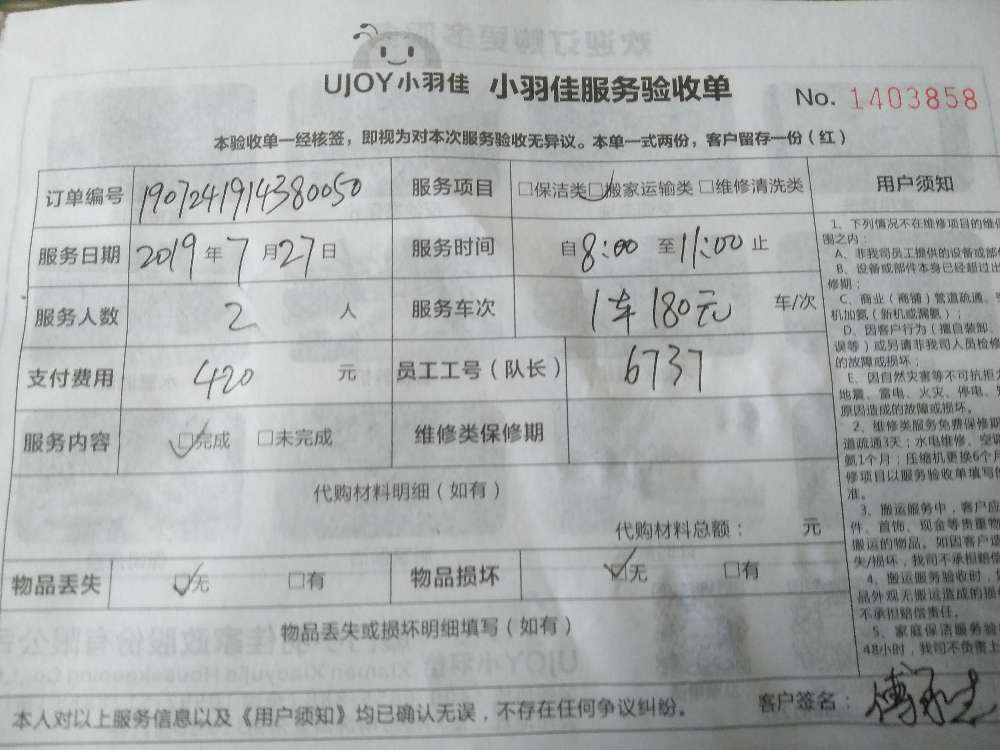 欢迎订购更多服
UJOY小羽佳 小羽佳服务验收单 No. 1403858
本验收单一经核签，即视为对本次服务验收无异议。本单一式两份，客户留存一份（红）
订单编号 1907241914380050 服务项目 □保洁类 □搬家运输类 □维修清洗类
服务日期 2019年7月27日 服务时间 自8:00至11:00止
服务人数 2 人 服务车次 1车180元 车/次
支付费用 420 元 员工工号（队长） 6737
服务内容 □完成 □未完成 维修类保修期
代购材料明细（如有）
代购材料总额： 元
物品丢失 □无 □有 物品损坏 □无 □有
物品丢失或损坏明细填写（如有）
本人对以上服务信息以及《用户须知》均已确认无误，不存在任何争议纠纷。 客户签名：
用户须知
1、下列情况不在维修项目的维修
围之内：
A、非我司员工提供的设备或部件
B、设备或部件本身已经超过出
修期；
C、商业（商铺）管道疏通、
机加氨（新机或漏氨）；
D、因客户行为（擅自装卸、
误等）或另请非我司人员检修
的故障或损坏；
E、因自然灾害等不可抗拒力
地震、雷电、火灾、停电、
原因造成的故障或损坏。
2、维修类服务免费保修期
道疏通3天；水电维修、空调
氨1个月；压缩机更换6个月
修项目以服务验收单填写的
准。
3、搬运服务中，客户应
件、首饰、现金等贵重物
搬运的物品。如因客户遗
失/损坏，我司不承担赔偿
4、搬运服务验收时，
品外观无搬运造成的损
不承担赔偿责任。
5、家庭保洁服务验
48小时，我司不负责上